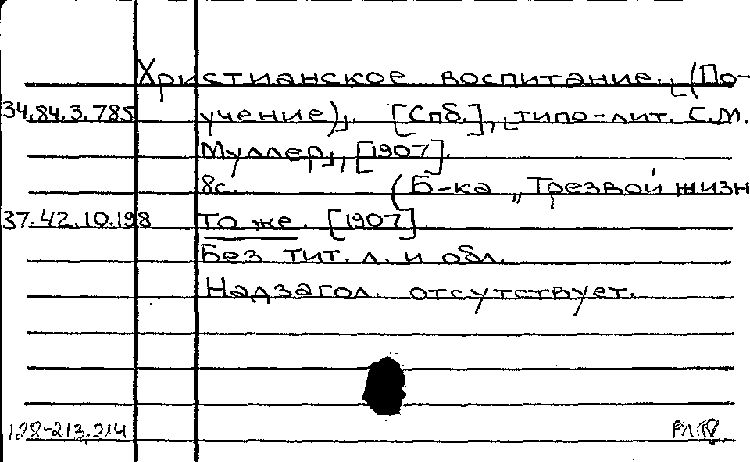 Христианское воспитание. (По-
34.84.3.785 учение). [Спб.], типо-лит. С.М.
Муллер, [1907].
8с. (Б-ка „Трезвой жизн
37.42.10.198 То же. [1907].
Без тит. л. и обл.
Надзагол. отсутствует.